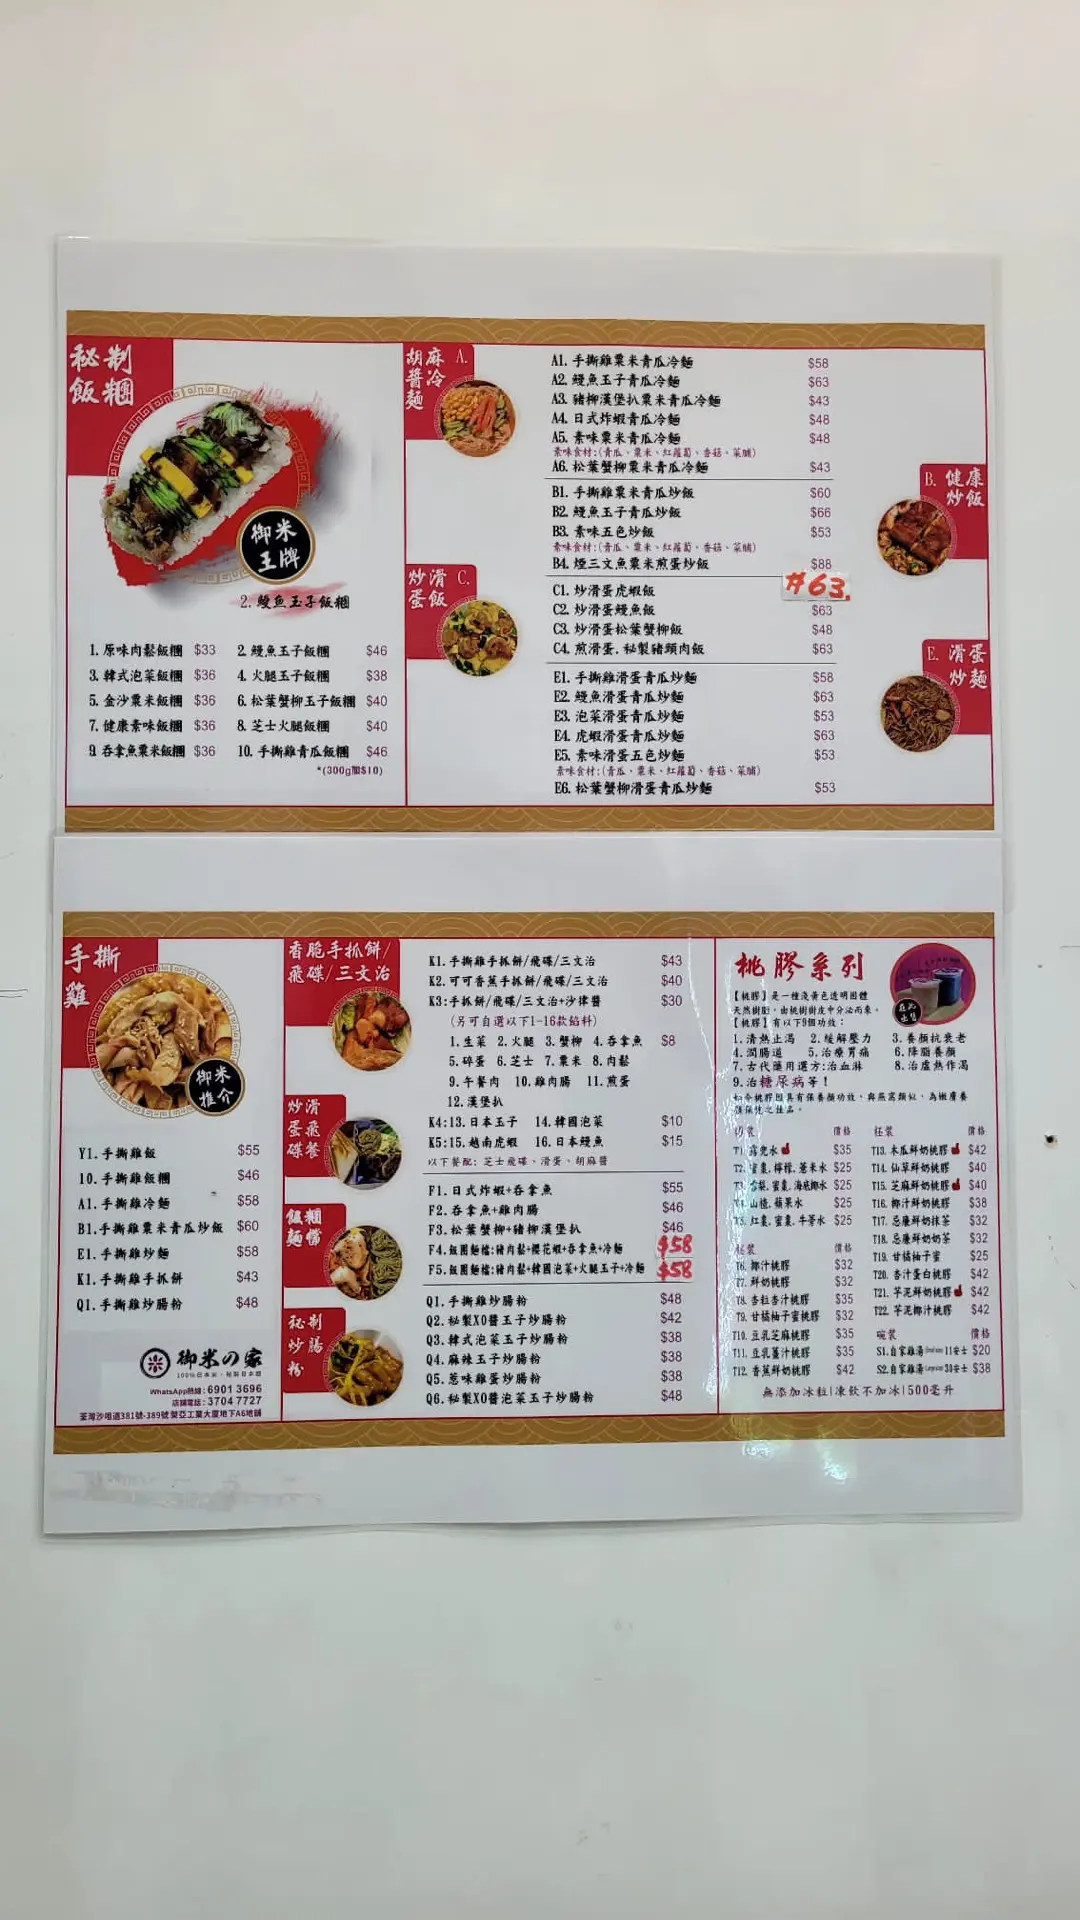 秘制
飯糰
御米
王牌
2. 鰻魚玉子飯糰
1. 原味肉鬆飯糰 $33 2. 鰻魚玉子飯糰 $46
3. 韓式泡菜飯糰 $36 4. 火腿玉子飯糰 $38
5. 金沙粟米飯糰 $36 6. 松葉蟹柳玉子飯糰 $40
7. 健康素味飯糰 $36 8. 芝士火腿飯糰 $40
9. 吞拿魚粟米飯糰 $36 10. 手撕雞青瓜飯糰 $46
*(300g加$10)
胡麻 A.
醬冷
麵
A1. 手撕雞粟米青瓜冷麵 $58
A2. 鰻魚玉子青瓜冷麵 $63
A3. 豬柳漢堡扒粟米青瓜冷麵 $43
A4. 日式炸蝦青瓜冷麵 $48
A5. 素味粟米青瓜冷麵 $48
素味食材:(青瓜、粟米、紅蘿蔔、香菇、菜脯)
A6. 松葉蟹柳粟米青瓜冷麵 $43
B. 健康
炒飯
B1. 手撕雞粟米青瓜炒飯 $60
B2. 鰻魚玉子青瓜炒飯 $66
B3. 素味五色炒飯 $53
素味食材:(青瓜、粟米、紅蘿蔔、香菇、菜脯)
B4. 煙三文魚粟米煎蛋炒飯 $88
炒滑 C.
蛋飯
C1. 炒滑蛋虎蝦飯 $63.
C2. 炒滑蛋鰻魚飯 $63
C3. 炒滑蛋松葉蟹柳飯 $48
C4. 煎滑蛋.秘製豬頸肉飯 $63
E. 滑蛋
炒麵
E1. 手撕雞滑蛋青瓜炒麵 $58
E2. 鰻魚滑蛋青瓜炒麵 $63
E3. 泡菜滑蛋青瓜炒麵 $53
E4. 虎蝦滑蛋青瓜炒麵 $63
E5. 素味滑蛋五色炒麵 $53
素味食材:(青瓜、粟米、紅蘿蔔、香菇、菜脯)
E6. 松葉蟹柳滑蛋青瓜炒麵 $53
手撕
雞
御米
推介
Y1. 手撕雞飯 $55
10. 手撕雞飯糰 $46
A1. 手撕雞冷麵 $58
B1. 手撕雞粟米青瓜炒飯 $60
E1. 手撕雞炒麵 $58
K1. 手撕雞手抓餅 $43
Q1. 手撕雞炒腸粉 $48
御米の家
100%日本米・秘製日本麵
WhatsApp熱線: 6901 3696
店鋪電話: 3704 7727
荃灣沙咀道381號-389號榮亞工業大廈地下A6地鋪
香脆手抓餅/
飛碟/三文治
K1. 手撕雞手抓餅/飛碟/三文治 $43
K2. 可可香蕉手抓餅/飛碟/三文治 $40
K3: 手抓餅/飛碟/三文治+沙律醬 $30
(另可自選以下1-16款餡料)
1. 生菜 2. 火腿 3. 蟹柳 4. 吞拿魚 $8
5. 碎蛋 6. 芝士 7. 粟米 8. 肉鬆
9. 午餐肉 10. 雞肉腸 11. 煎蛋
12. 漢堡扒
K4: 13. 日本玉子 14. 韓國泡菜 $10
K5: 15. 越南虎蝦 16. 日本鰻魚 $15
炒滑
蛋飛
碟餐
以下餐配: 芝士飛碟、滑蛋、胡麻醬
F1. 日式炸蝦+吞拿魚 $55
F2. 吞拿魚+雞肉腸 $46
F3. 松葉蟹柳+豬柳漢堡扒 $46
飯糰
麵檔
F4. 飯團麵檔:豬肉鬆+櫻花蝦+吞拿魚+冷麵 $58
F5. 飯團麵檔:豬肉鬆+韓國泡菜+火腿玉子+冷麵 $58
秘制
炒腸
粉
Q1. 手撕雞炒腸粉 $48
Q2. 秘製XO醬玉子炒腸粉 $42
Q3. 韓式泡菜玉子炒腸粉 $38
Q4. 麻辣玉子炒腸粉 $38
Q5. 惹味雞蛋炒腸粉 $38
Q6. 秘製XO醬泡菜玉子炒腸粉 $48
桃膠系列
在此
出售
【桃膠】是一種淺黃色透明固體
天然樹脂，由桃樹樹皮中分泌而來。
【桃膠】有以下9個功效:
1. 清熱止渴 2. 緩解壓力 3. 養顏抗衰老
4. 潤腸道 5. 治療胃痛 6. 降脂養顏
7. 古代藥用選方:治血淋 8. 治虛熱作渴
9. 治糖尿病等！
如今桃膠因具有保養顏功效，與燕窩類似，為嫩膚養
顏保健之佳品。
價格
兜水 $35
T2. 蜜棗.檸檬.薏米水 $25
蜜棗.海底椰水 $25
山楂.蘋果水 $25
紅棗.蜜棗.牛蒡水 $25
杯裝 價格
T6. 椰汁桃膠 $32
T7. 鮮奶桃膠 $32
T8. 杏粒杏汁桃膠 $35
T9. 甘橘柚子蜜桃膠 $32
T10. 豆乳芝麻桃膠 $35
T11. 豆乳薑汁桃膠 $35
T12. 香蕉鮮奶桃膠 $42
杯裝 價格
T13. 木瓜鮮奶桃膠 $42
T14. 仙草鮮奶桃膠 $40
T15. 芝麻鮮奶桃膠 $40
T16. 椰汁鮮奶桃膠 $38
T17. 忌廉鮮奶抹茶 $32
T18. 忌廉鮮奶奶茶 $32
T19. 甘橘柚子蜜 $25
T20. 杏汁蛋白桃膠 $42
T21. 芋泥鮮奶桃膠 $42
T22. 芋泥椰汁桃膠 $42
碗裝 價格
S1. 自家雞湯 11安士 $20
S2. 自家雞湯 38安士 $38
無添加冰粒|凍飲不加冰|500毫升